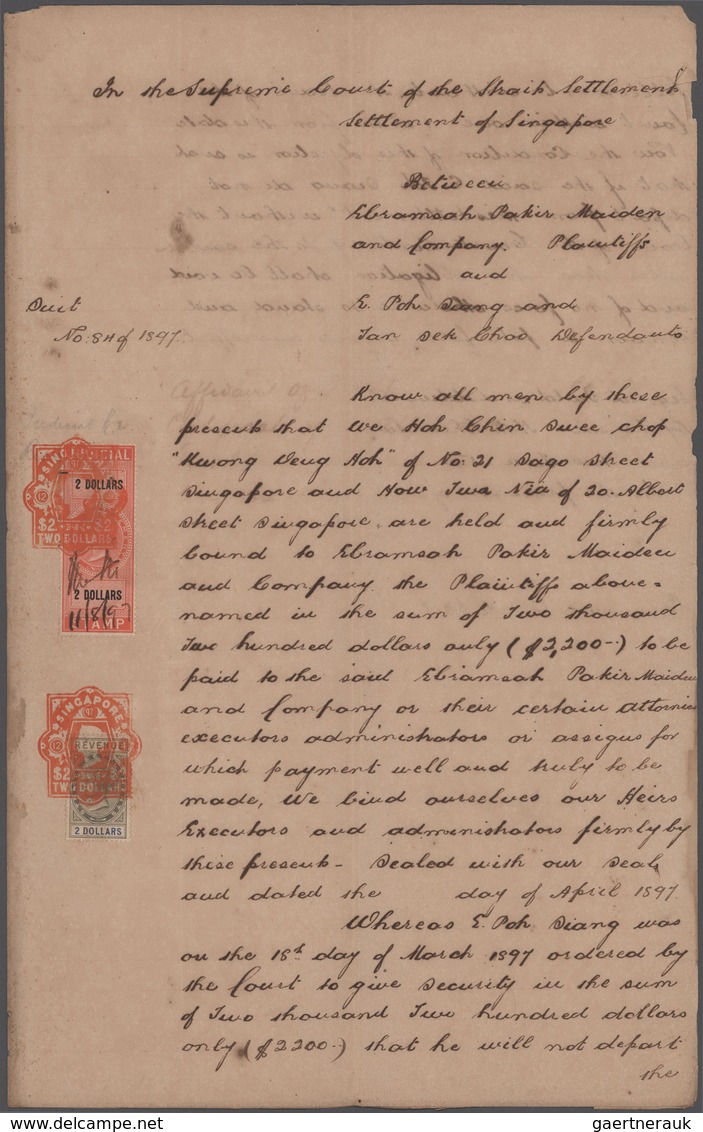 In the Supreme Court of the Straits Settlements
Settlement of Singapore
Between
Ebramsah Pakir Maiden
and Company. Plaintiffs
and
Suit
No: 84 of 1897.
E. Poh Siang and
Tan Sek Choo Defendants
Know all men by these
presents that we Hoh Chin Swee chop
"Kwong Veng Hoh" of No: 21 Sago Street
Singapore and How Twa Nia of 20. Albert
Street Singapore, are held and firmly
bound to Ebramsah Pakir Maiden
and Company the Plaintiffs above=
named in the sum of Two thousand
Two hundred dollars only ($2,200-) to be
paid to the said Ebramsah Pakir Maiden
and Company or their certain attornies
executors administrators or assigns for
which payment well and truly to be
made, We bind ourselves our Heirs
Executors and administrators firmly by
these presents - Sealed with our Seals
and dated the day of April 1897.
Whereas E. Poh Siang was
on the 18th day of March 1897 ordered by
the Court to give security in the sum
of Two thousand Two hundred dollars
only ($2200-) that he will not depart
the
SINGAPORE
2 DOLLARS
$2 $2
TWO DOLLARS
2 DOLLARS
11/8/97
SINGAPORE
97
12
REVENUE
$2
TWO DOLLARS
2 DOLLARS
gaertnerauk